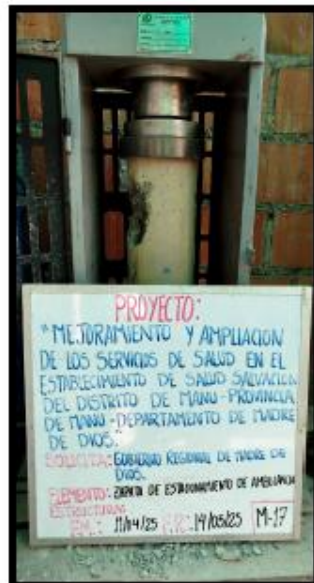 PROYECTO:
"MEJORAMIENTO Y AMPLIACION
DE LOS SERVICIOS DE SALUD EN EL
ESTABLECIMIENTO DE SALUD SALVACION
DEL DISTRITO DE MANU-PROVINCIA
DE MANU-DEPARTAMENTO DE MADRE
DE DIOS."
SOLICITA: GOBIERNO REGIONAL DE MADRE DE
DIOS.
ELEMENTO: ZAPATA DE ESTACIONAMIENTO DE AMBULANCIA
ESTRUCTURAL
F.M.: 11/04/25 F.R.: 14/05/25 M-17